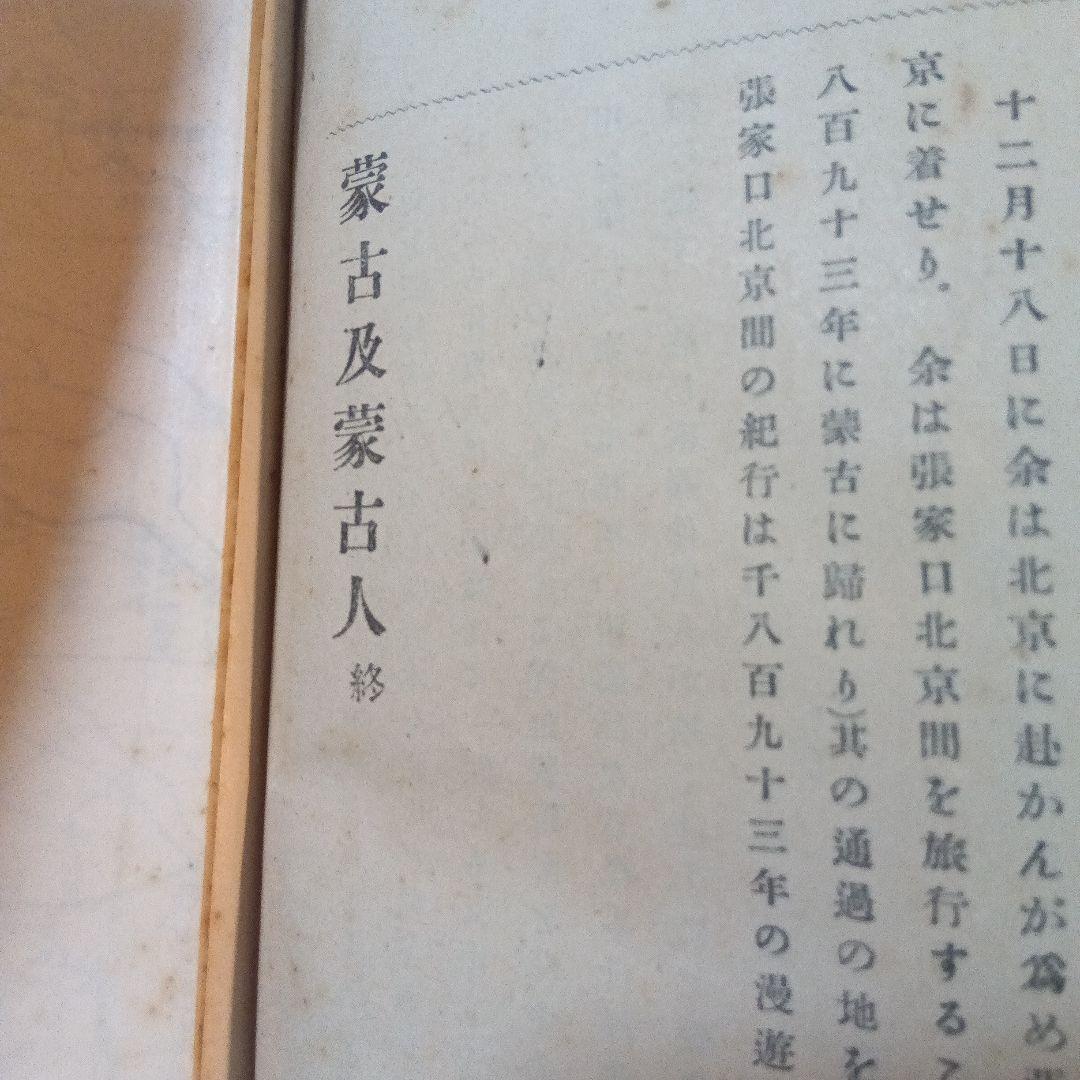 十二月十八日に余は北京に赴かんが爲め
京に着せり。余は張家口北京間を旅行する
八百九十三年に蒙古に歸れり)其の通過の地を
張家口北京間の紀行は千八百九十三年の漫遊
蒙古及蒙古人終